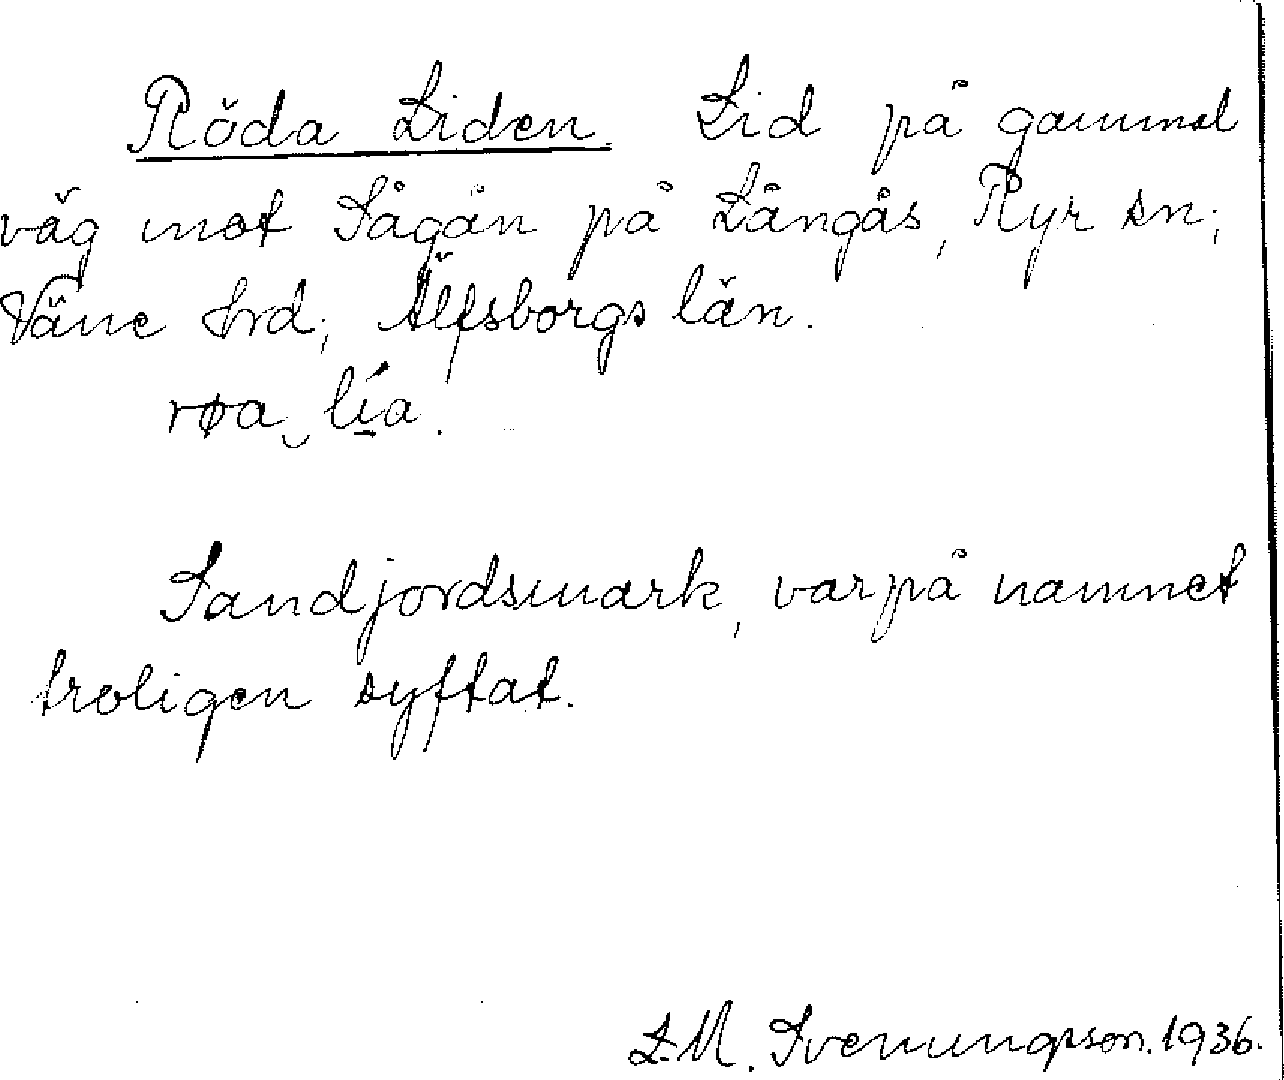 Röda Liden. Lid på gammal
väg mot Sågån på Långås, Ryr sn;
Väne hrd; Älfsborgs län.
røa ‿ lía.
Sandjordsmark, varpå namnet
troligen syftat.
L.M. Svenungsson. 1936.